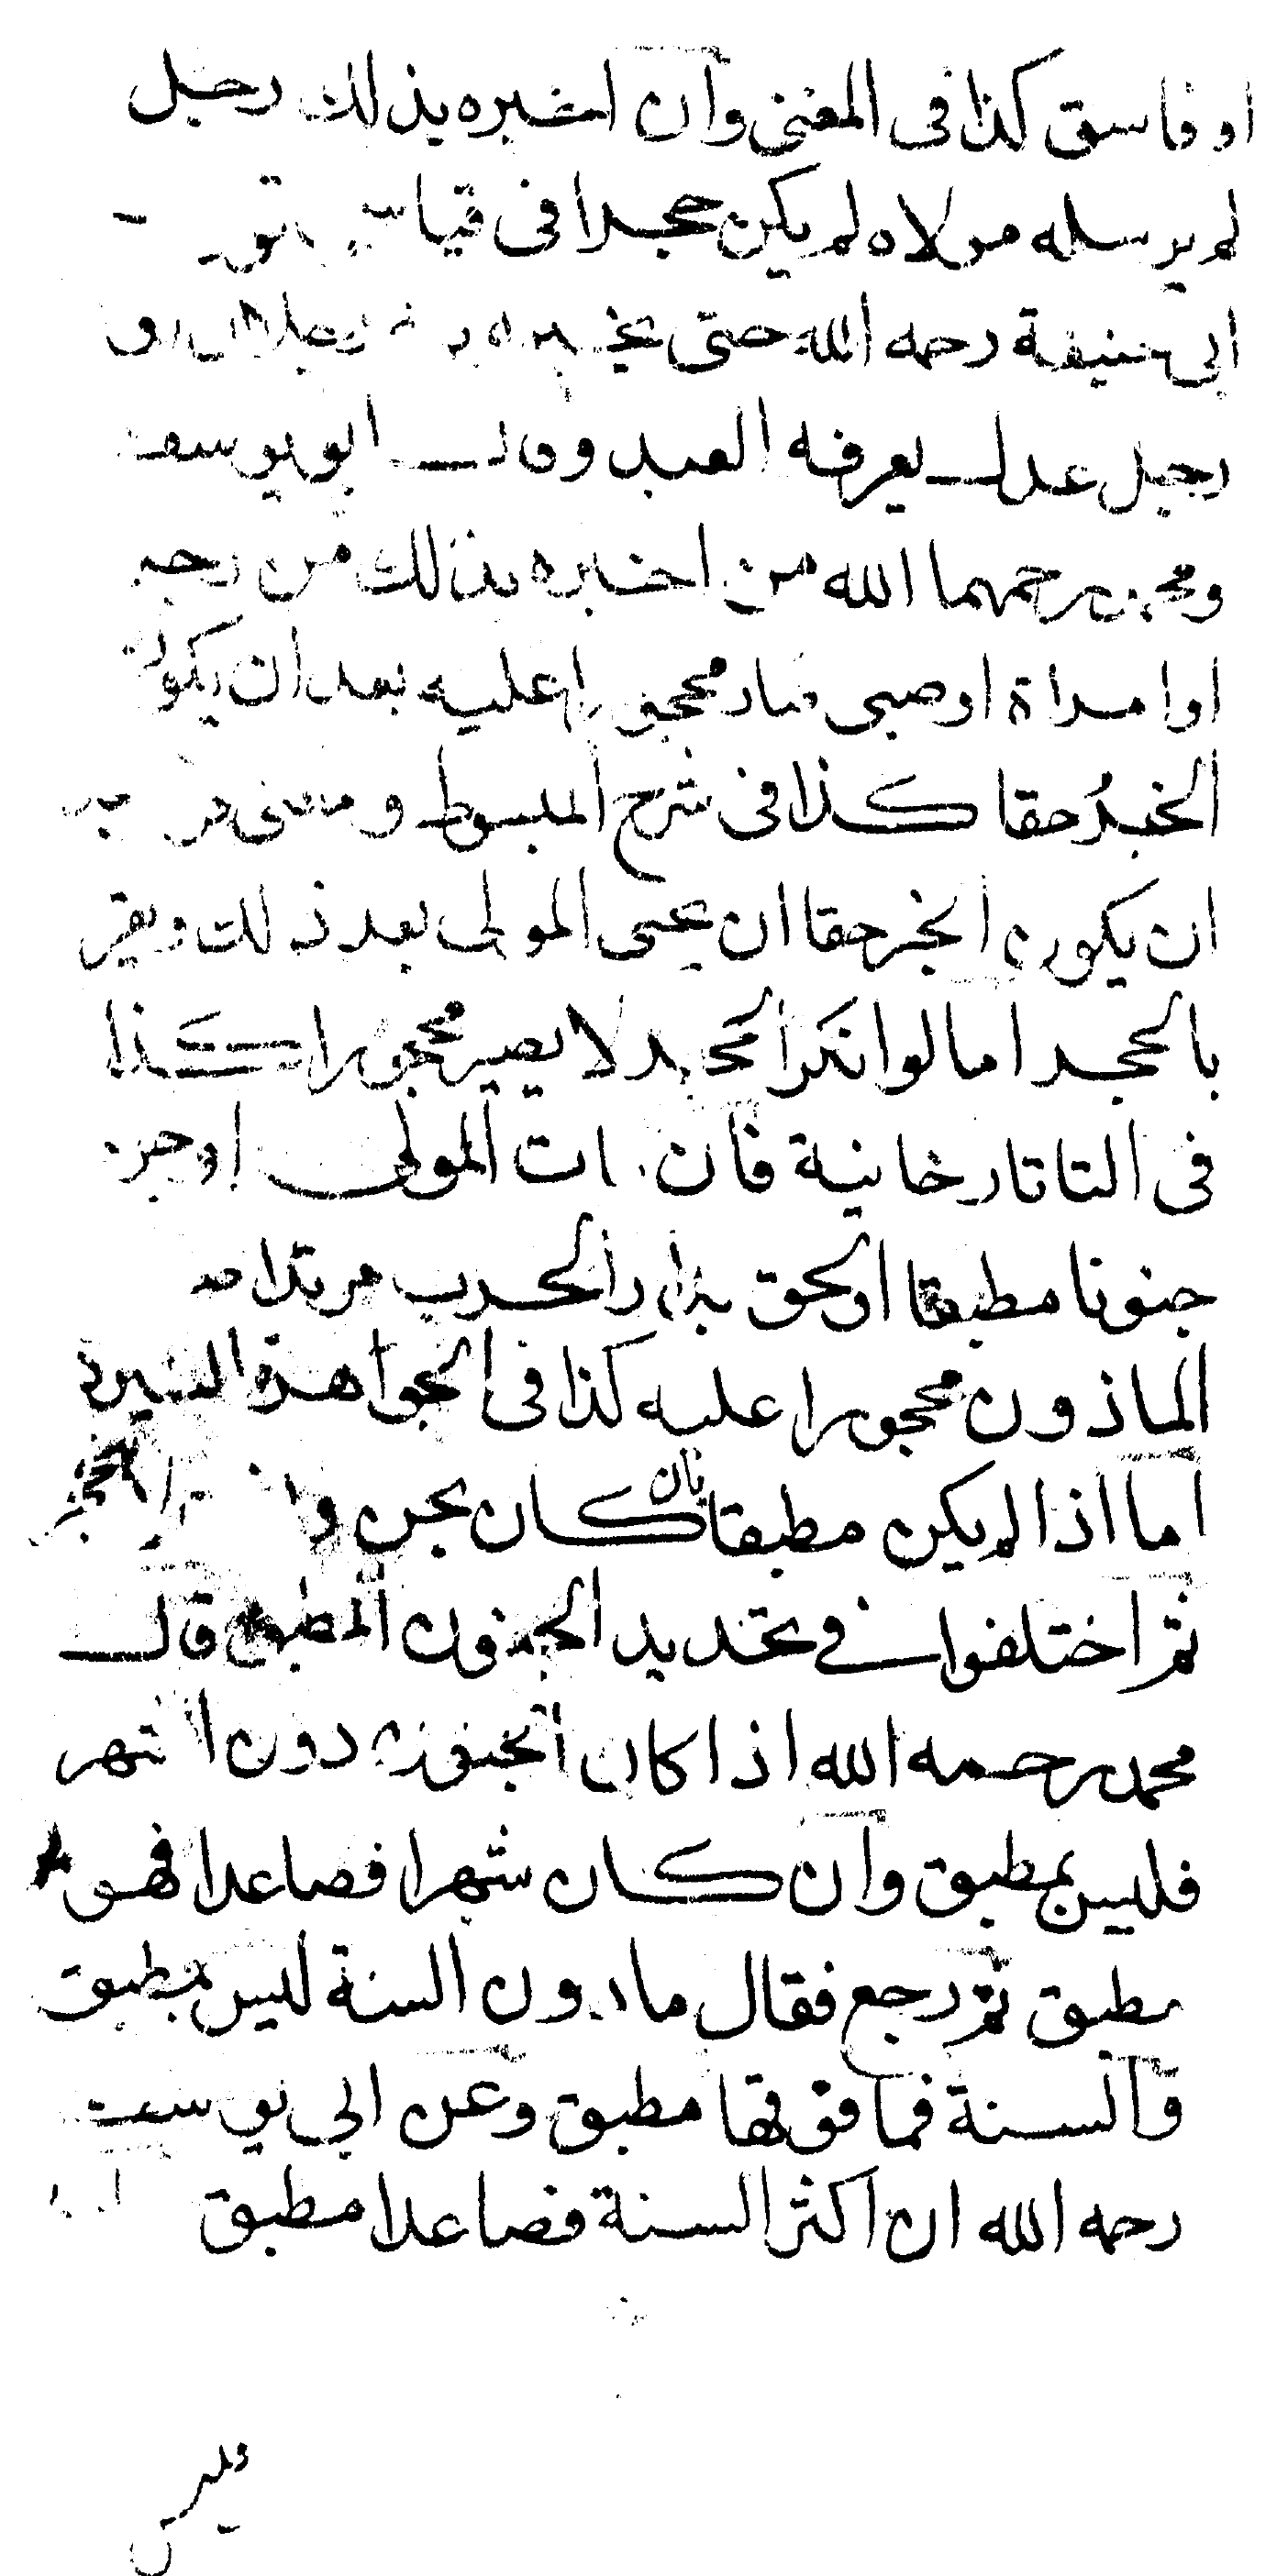 او فاسق كذا فى المغنى وان اخبره بذلك رجل
لم يرسله مولاه لم يكن حجرا فى قياس قول
ابى حنيفة رحمه الله حتى يخبره به رجلان او
رجل عدل يعرفه العبد وقال ابو يوسف
ومحمد رحمهما الله من اخبره بذلك من رجل
او امراة او صبى صار محجورا عليه بعد ان يكون
الخبر حقا كذا فى شرح المبسوط ومعنى
ان يكون الخبر حقا ان يجئ المولى بعد ذلك ويقر
بالحجر اما لو انكر الحجر لا يصير محجورا كذا
فى التاتارخانية فان مات المولى او جن
جنونا مطبقا او لحق بدار الحرب مرتدا صار
الماذون محجورا عليه كذا فى الجواهرة النيرة
اما اذا لم يكن مطبقا بان كان يجن و
ثم اختلفوا فى تحديد الجنون المطبق قال
محمد رحمه الله اذا كان الجنون دون الشهر
فليس بمطبق وان كان شهرا فصاعدا فهو
مطبق ثم رجع فقال ما دون السنة ليس بمطبق
والسنة فما فوقها مطبق وعن ابى يوسف
رحمه الله ان اكثر السنة فصاعدا مطبق